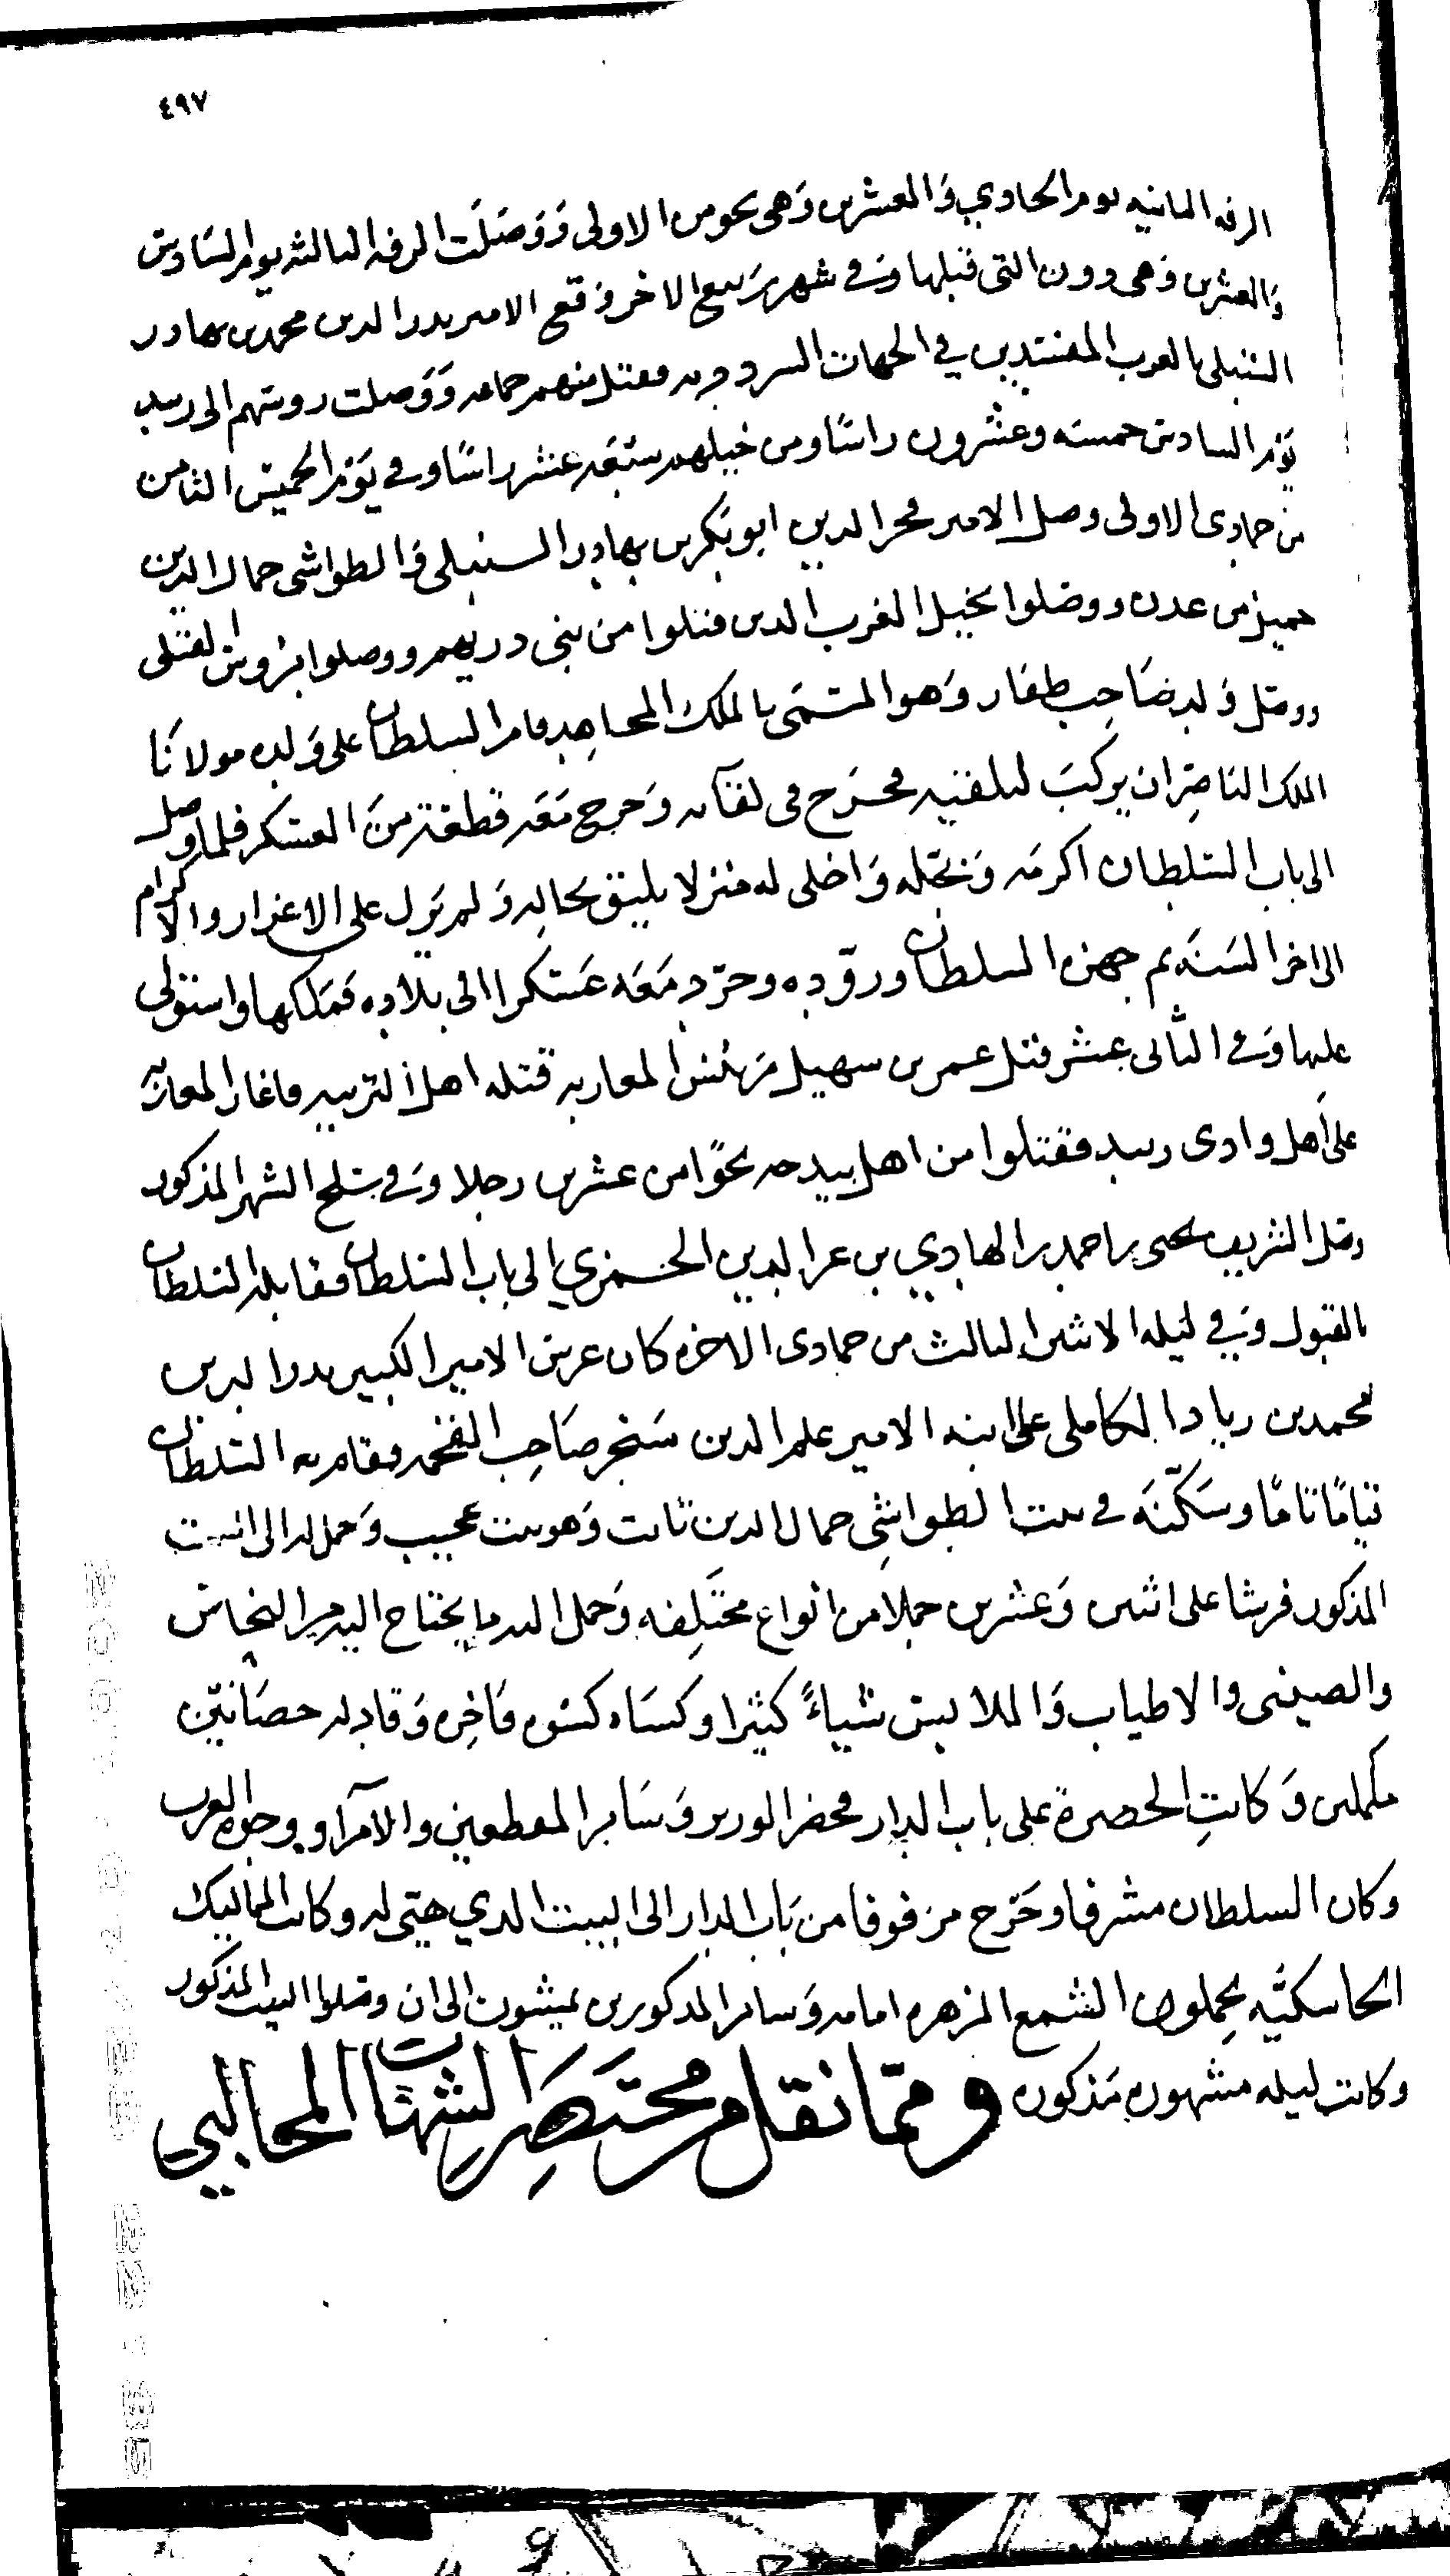 ٤٩٧
الزفه الثانيه يوم الحادي والعشرين وهي نحو من الاولى ووصلت الزفه الثالثه يوم السادس
والعشرين وهي دون التي قبلها وفي شهر ربيع الاخر وقع الامير بدر الدين محمد بن بهادر
السنبلي بالعرب المفسدين في الجهات السرددية فقتل منهم جماعه ووصلت روسهم الى زبيد
يوم السادس خمسه وعشرون راسا ومن خيلهم سبعه عشر راسا وفي يوم الخميس الثامن
من جمادى الاولى وصل الامير فخر الدين ابو بكر بن بهادر السنبلي والطواشي جمال الدين
جميل من عدن ووصلوا بخيل العرب الذين قتلوا من بني دريهم ووصلوا بروس القتلى
ووصل ولد صاحب ظفار وهو المسمى بالملك المجاهد فامر السلطان على ولده مولانا
الملك الناصر ان يركب لتلقيه فخرج في لقائه وخرج معه قطعة من العسكر فلما وصل
الى باب السلطان اكرمه وبجله واخلى له منزلا يليق بحاله ولم يزل على الاعزاز والاكرام
الى اخر السنه ثم جهزه السلطان وزوده وجرد معه عسكرا الى بلاده فملكها واستولى
عليها وفي الثاني عشر قتل عمر بن سهيل المعازبه قتله اهل التربيه فاغار المعازبه
على اهل وادي زبيد فقتلوا من اهل بيدحه نحوا من عشرين رجلا وفي سلخ الشهر المذكور
وصل الشريف يحيى بن احمد بن الهادي بن عز الدين الحمزي الى باب السلطان فقابله السلطان
بالقبول وفي ليله الاثنين الثالث من جمادى الاخره كان عرس الامير الكبير بدر الدين
محمد بن زياد الكاملي على ابنه الامير علم الدين سنجر صاحب الفخمه فقام به السلطان
قياما تاما وسكنه في بيت الطواشي جمال الدين ثابت وهو بيت عجيب وحمل له الى البيت
المذكور فرشا على اثنين وعشرين جملا من انواع مختلفه وحمل اليه ما يحتاج اليه من النحاس
والصيني والاطياب والملابس شياء كثيرا وكساه كسوه فاخره وقاد له حصانين
مكملين وكانت الحضرة على باب الدار فحضر الوزير وساير المقطعين والامرا ووجوه العرب
وكان السلطان مشرفا وخرج مزفوفا من باب الدار الى البيت الذي هيى له وكانت المماليك
الخاسكيه يحملون الشمع المزهره امامه وساير المذكورين يمشون الى ان وصلوا البيت المذكور
وكانت ليله مشهوره مذكوره ومما نقل من مختصر الشهاب المحالبي